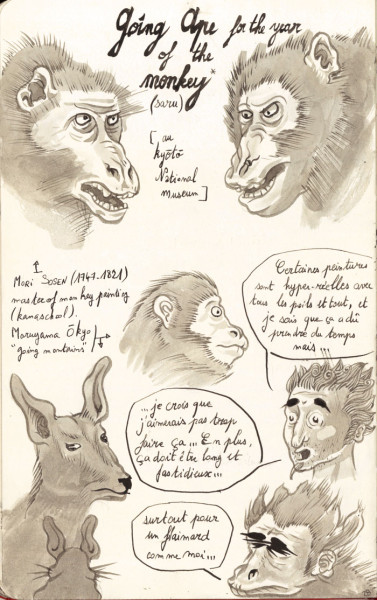 Going Ape for the year
of the
monkey*
(saru)
[au
Kyōtō
National
museum]
Mori Sosen (1747-1821)
master of monkey painting
(kanoschool).
Maruyama Ōkyo
"going mountains"
Certaines peintures
sont hyper-réelles avec
tous les poils et tout, et
je sais que ça a dû
prendre du temps
mais...
...je crois que
j'aimerais pas trop
faire ça... En plus,
ça doit être long et
fastidieux...
surtout pour
un flaimard
comme moi...